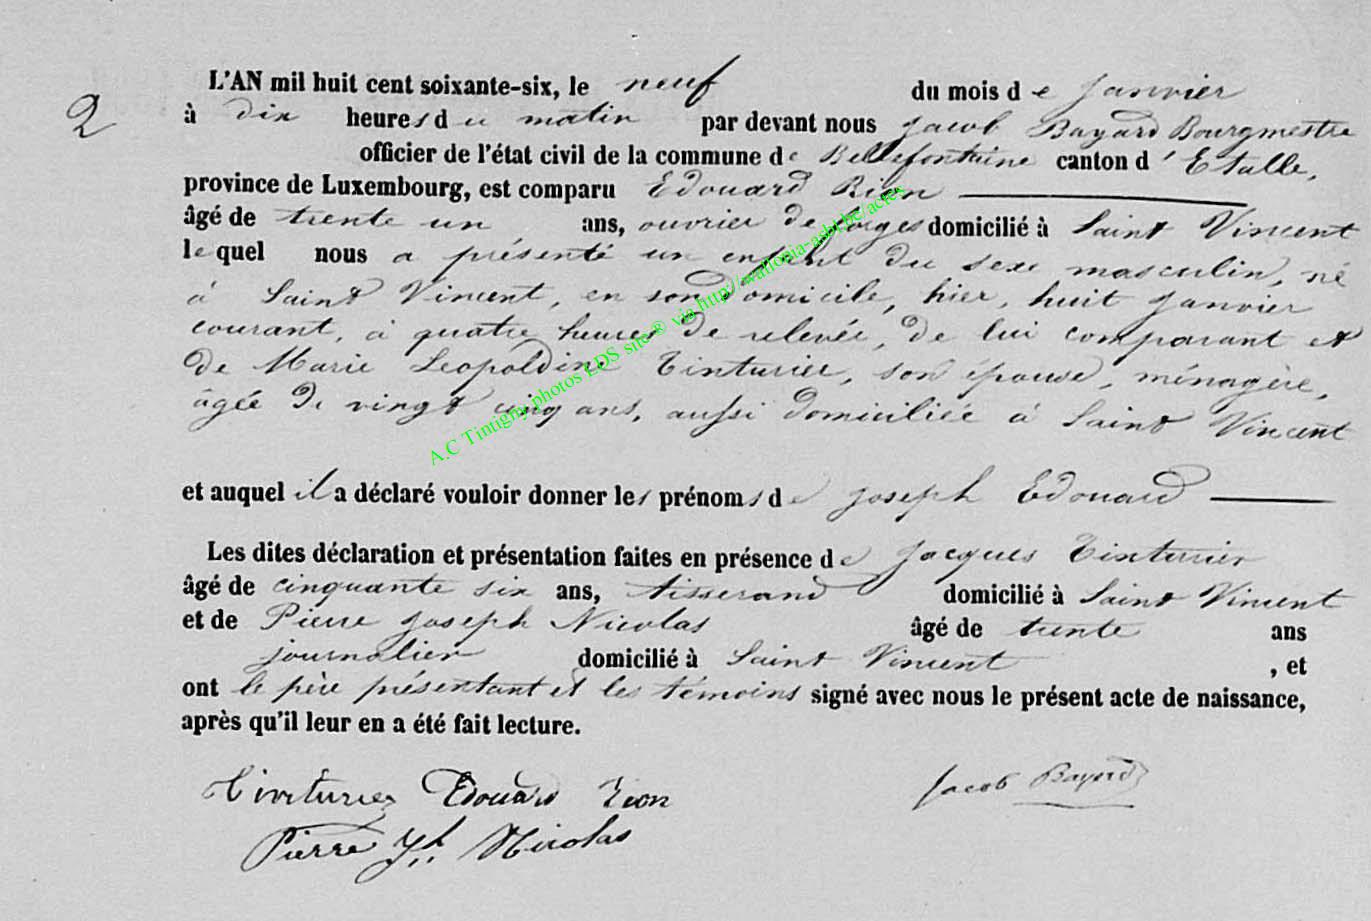 L'AN mil huit cent soixante-six, le neuf du mois de Janvier
2 à dix heures du matin par devant nous Jacob Bayard Bourgmestre
officier de l'état civil de la commune de Bellefontaine canton d'Etalle,
province de Luxembourg, est comparu Edouard Rion
âgé de trente un ans, ouvrier de forges domicilié à Saint Vincent
lequel nous a présenté un enfant du sexe masculin, né
à Saint Vincent, en son domicile, hier, huit Janvier
courant, à quatre heures de relevée, de lui comparant et
de Marie Leopoldine Tinturier, son épouse, ménagère,
âgée de vingt cinq ans, aussi domiciliée à Saint Vincent
et auquel il a déclaré vouloir donner les prénoms de Joseph Edouard
Les dites déclaration et présentation faites en présence de Jacques Tinturier
âgé de cinquante six ans, tisserand domicilié à Saint Vincent
et de Pierre Joseph Nicolas âgé de trente ans
journalier domicilié à Saint Vincent, et
ont le père présentant et les témoins signé avec nous le présent acte de naissance,
après qu'il leur en a été fait lecture.
Tinturier Edouard Rion Jacob Bayard
Pierre Jh Nicolas
A.C Tintigny photos LDS site® via http://wallonia-asbl.be/actes